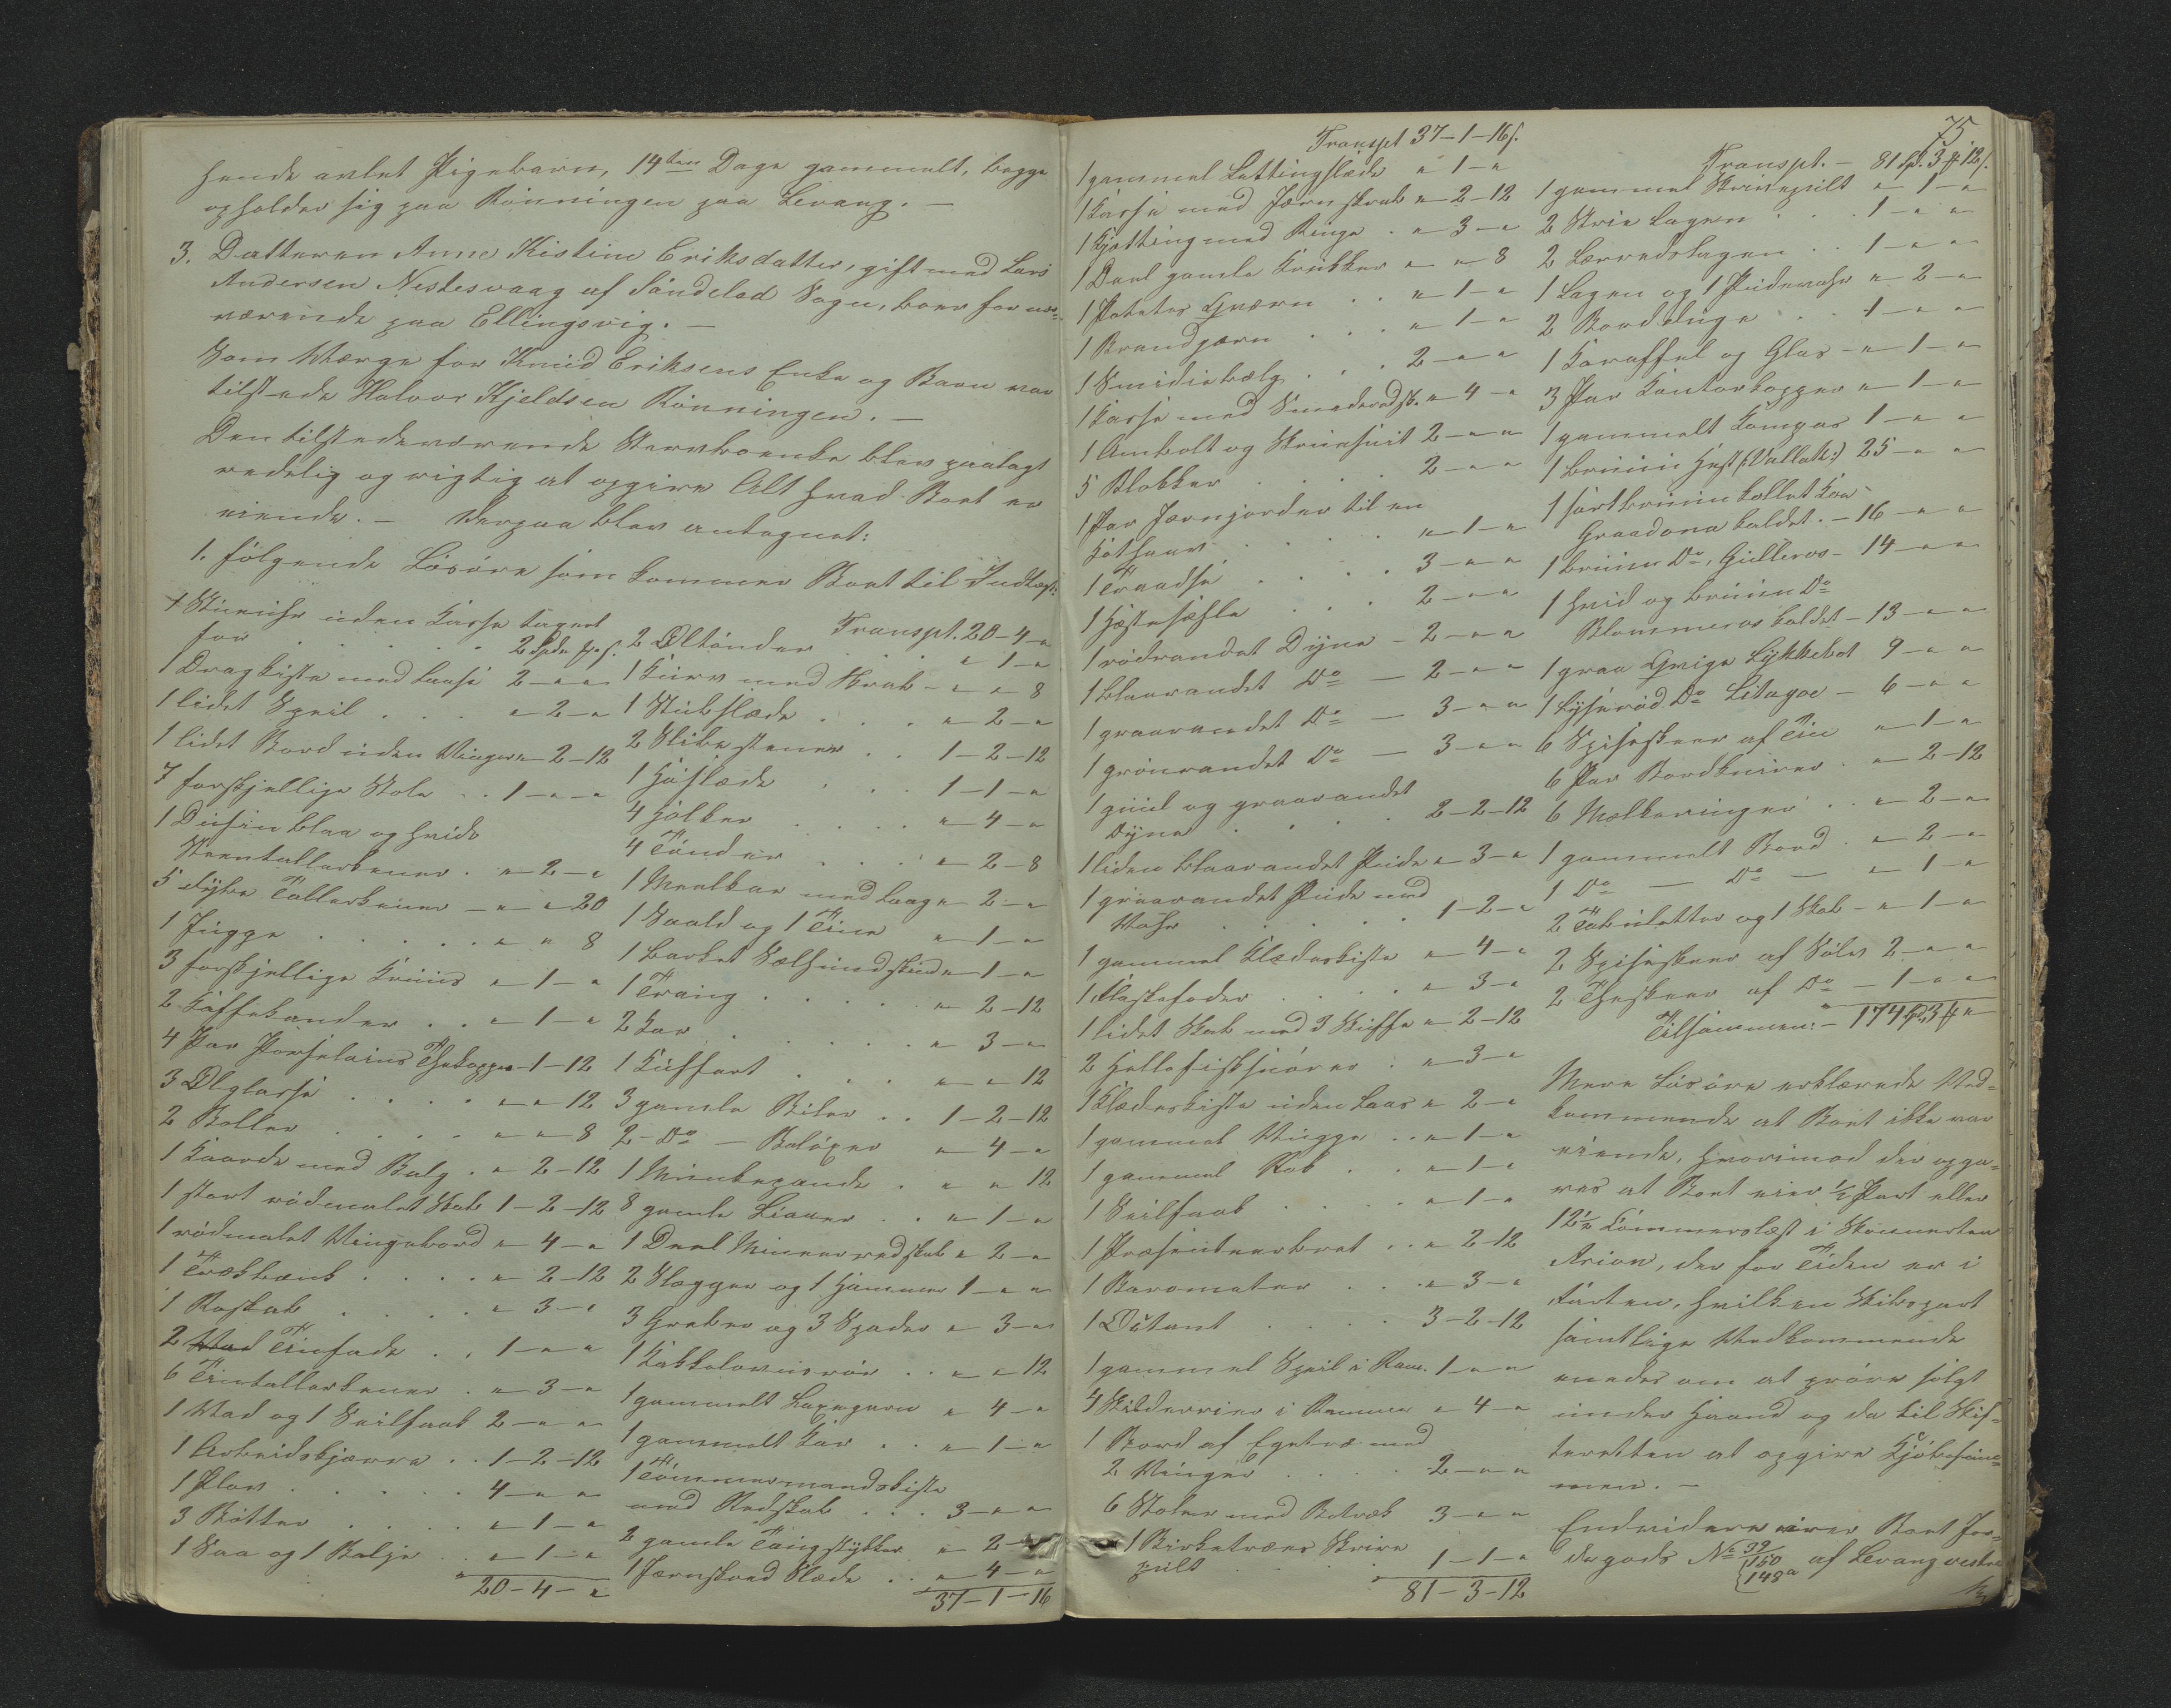 hende avlet Pigebarn, 14ten Dage gammelt, begge
opholder sig paa Rønningen paa Levang. —
3. Datteren Anne Kistine Eriksdatter, gift med Lars
Andersen Nestesvaag af Søndeled Sogn, boer for nær-
værende paa Ellingsvig. —
Som Værge for Knud Eriksens Enke og Barn var
tilstede Halvor Kjeldsen Rønningen. —
Den tilstedeværende Stervboenke blev paalagt
redelig og rigtig at opgive Alt hvad Boet er
eiende. — Derpaa blev antegnet:
1. følgende Løsøre som kommer Boet til Indtægt:
1 Stueuhr uden Kasse taxeret
for . . . 2 Spd. " "
1 Dragkiste med Laase 2 — " — "
1 lidet Speil . . . " — 2 — "
1 lidet Bord uden Vinger " — 2 — 12
7 forskjellige Stole . . 1 — " — "
1 Dusin blaa og hvide
Steentallerkener . " — 2 — "
5 dybe Tallerkener — " — " 20
1 Jugge . . . " " 8
3 forskjellige Kruus " — 1 — "
2 Kaffekander . . " — 1 — "
4 Par Porselains Thekopper — 1 — 12
3 Ølglasse . . . " — " 12
2 Boller . . . " — " 8
1 Kaarde med Balg . " — 2 — 12
1 stort rødmalet Skab 1 — 2 — 12
1 rødmalet Vingebord " — 4 — "
1 Trækbænk . . . " — 2 — 12
1 Roskab . . . " — 3 — "
2 Tinfade . . 1 — " — "
6 Tintallerkener . " — 3 — "
1 Vad og 1 Seilsaab 2 — " — "
1 Arbeidskjærre . . 1 — 2 — 12
1 Plov . . . 4 — " — "
3 Bøtter . . . " — 1 — "
1 Saa og 1 Balje . . " — 1 — "
20 — 4 — "
Transpt. 20 — 4 — "
2 Øltønder . . . " 1 — "
1 Kurv med Skrab — " — " 8
1 Stubslæde . . . " — 2 — "
2 Slibestener . . 1 — 2 — 12
1 Høslæde . . . 1 — 1 — "
4 Holker . . . " — 4 — "
4 Tønder . . . " — 2 — 8
1 Meelkar med Laag " — 2 — "
1 Saald og 1 Tine " — 1 — "
1 barket Sælhundskind " — 1 — "
1 Traug . . . " — 2 — 12
2 Kar . . . " 3 — "
1 Kuffert . . . " — " 12
3 gamle Biler . . 1 — 2 — 12
2 — Do — Boløxer " — 4 — "
1 Munkepande . " " 12
8 gamle Liauer . . " — 1 — "
1 Deel Mineerredskab " 2 — "
2 Slægger og 1 Hammer 1 — " "
3 Greber og 3 Spader " 3 — "
1 Kakkelovnsrør . . " — " 12
1 gammelt Laxegarn " 4 — "
1 gammelt Kar . . " — 1 — "
1 Tømmermandskiste
med Redskab . . . 3 — " — "
2 gamle Taugstykker " — 2 — "
1 Jernskoed Slæde . . " — 4 — "
37 — 1 — 16
75
Transpt 37 — 1 — 16 s.
1 gammel Lettingslæde " 1 — "
1 Kasse med Jernskrab " — 2 — 12
1 Kjætting med Ringe . " 3 — "
1 Deel gamle Krukker " — " 8
1 Potetes Qværn . . " — 1 — "
1 Brandjærn . . . " — 1 — "
1 Smidiebælg . . . 2 — " — "
1 Kasse med Smederedsk. " 4 — "
1 Ambolt og Skruestit 2 — " — "
5 Blokker . . . 2 — " — "
1 Par Jernjorder til en
. . . " — 1 — "
1 Traadse . . . 3 — " — "
1 Hestesehle . . . 2 — " — "
1 rødrandet Dyne — 2 — " — "
1 blaarandet Do — 2 — " — "
1 graarandet Do — 3 — " — "
1 grønrandet Do — 3 — " — "
1 guul og graarandet
Dyne . . . 2 — 2 — 12
1 liden blaarandet Pude " — 3 — "
1 graarandet Pude med
Vahr . . . 1 — 2 — "
1 gammel Klædeskiste " — 4 — "
1 Flaskefoder . . . " — 3 — "
1 lidet Skab med 3 Skuffer " — 2 — 12
2 Hellefisksnører . " — 3 — "
1 Klædeskiste uden Laas " 2 — "
1 gammel Vugge . . " — 1 — "
1 gammel Rok . . " — 1 — "
1 Seilsaab . . . " — 1 — "
1 Præsenteerbret . . " 2 — 12
1 Barometer . . . " 3 — "
1 Octant . . . 3 — 2 — 12
1 gammel Speil i Ram. 1 — " — "
4 Skilderier i Rammer " — 4 — "
1 Bord af Egetræ med
2 Vinger . . . 2 — " — "
6 Stoler med Betræk 3 — " — "
1 Birketræes Skrive
pult . . . 1 — 1 — "
81 — 3 — 12
Transpt. — 81 Spd. 3 # 12 s.
1 gammel Skrivepult " 1 — "
2 Strie Lagen . . . 1 — " — "
2 Lærredslagen . . 1 — " — "
1 Lagen og 1 Pudevahr " — 2 — "
2 Borddúge . . 1 — " — "
1 Karaffel og Glas — " — 1 — "
3 Par Kantorkopper " — 1 — "
1 gammelt Kompas 1 — " — "
1 bruun Hest (: Vallak :) 25 — " — "
1 sortbruun kollet Koe
Graadona kaldet. — 16 — " — "
1 bruun Do, Gulleros — 14 — " — "
1 hvid og bruun Do
Blommeros kaldet — 13 — " — "
1 graa Qvige Lykkebot 9 — " — "
1 lyserød Do Litagoe — 6 — " — "
6 Spiseskeer af Tin " — 1 — "
6 Par Bordknive . " — 2 — 12
6 Melkeringer . . " — 2 — "
1 gammelt Bord . " — 2 — "
1 Do — Do — " — 1 — "
2 Tabuletter og 1 Skab — " — 1 — "
2 Spiseskeer af Sølv 2 — " — "
2 Theskeer af Do — 1 — " — "
Tilsammen: — 174 Sp. 3 # "
Mere Løsøre erklærede Ved-
kommende at Boet ikke var
eiende, hvorimod der opga-
ves at Boet eier ½ Part eller
12½ Commerslæst i Skonnerten
Arion, der for Tiden er i
Farten, hvilken Skibspart
samtlige Vedkommende
enedes om at prøve solgt
under Haand og da til Skif-
teretten at opgive Kjøbesum-
men. —
Endvidere eier Boet Jor-
degods No 39/150 148a af Levang vestre